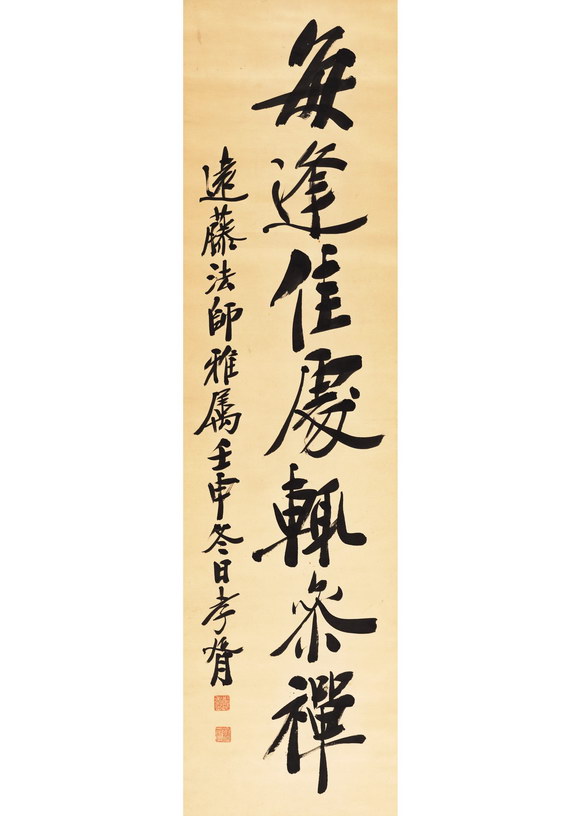 每逢佳處輒參禪
遠藤法師雅属壬申冬日孝胥